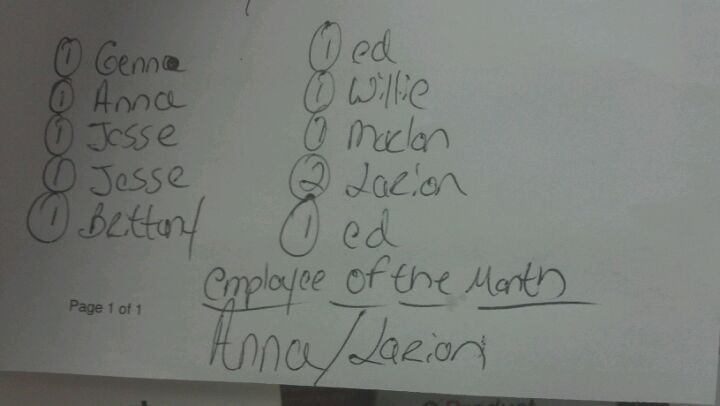 ① Genna
① Anna
① Jesse
① Jesse
① Brittany
① ed
① Willie
① Marlon
② Larion
① ed
Employee of the Month
Page 1 of 1
Anna/Larion